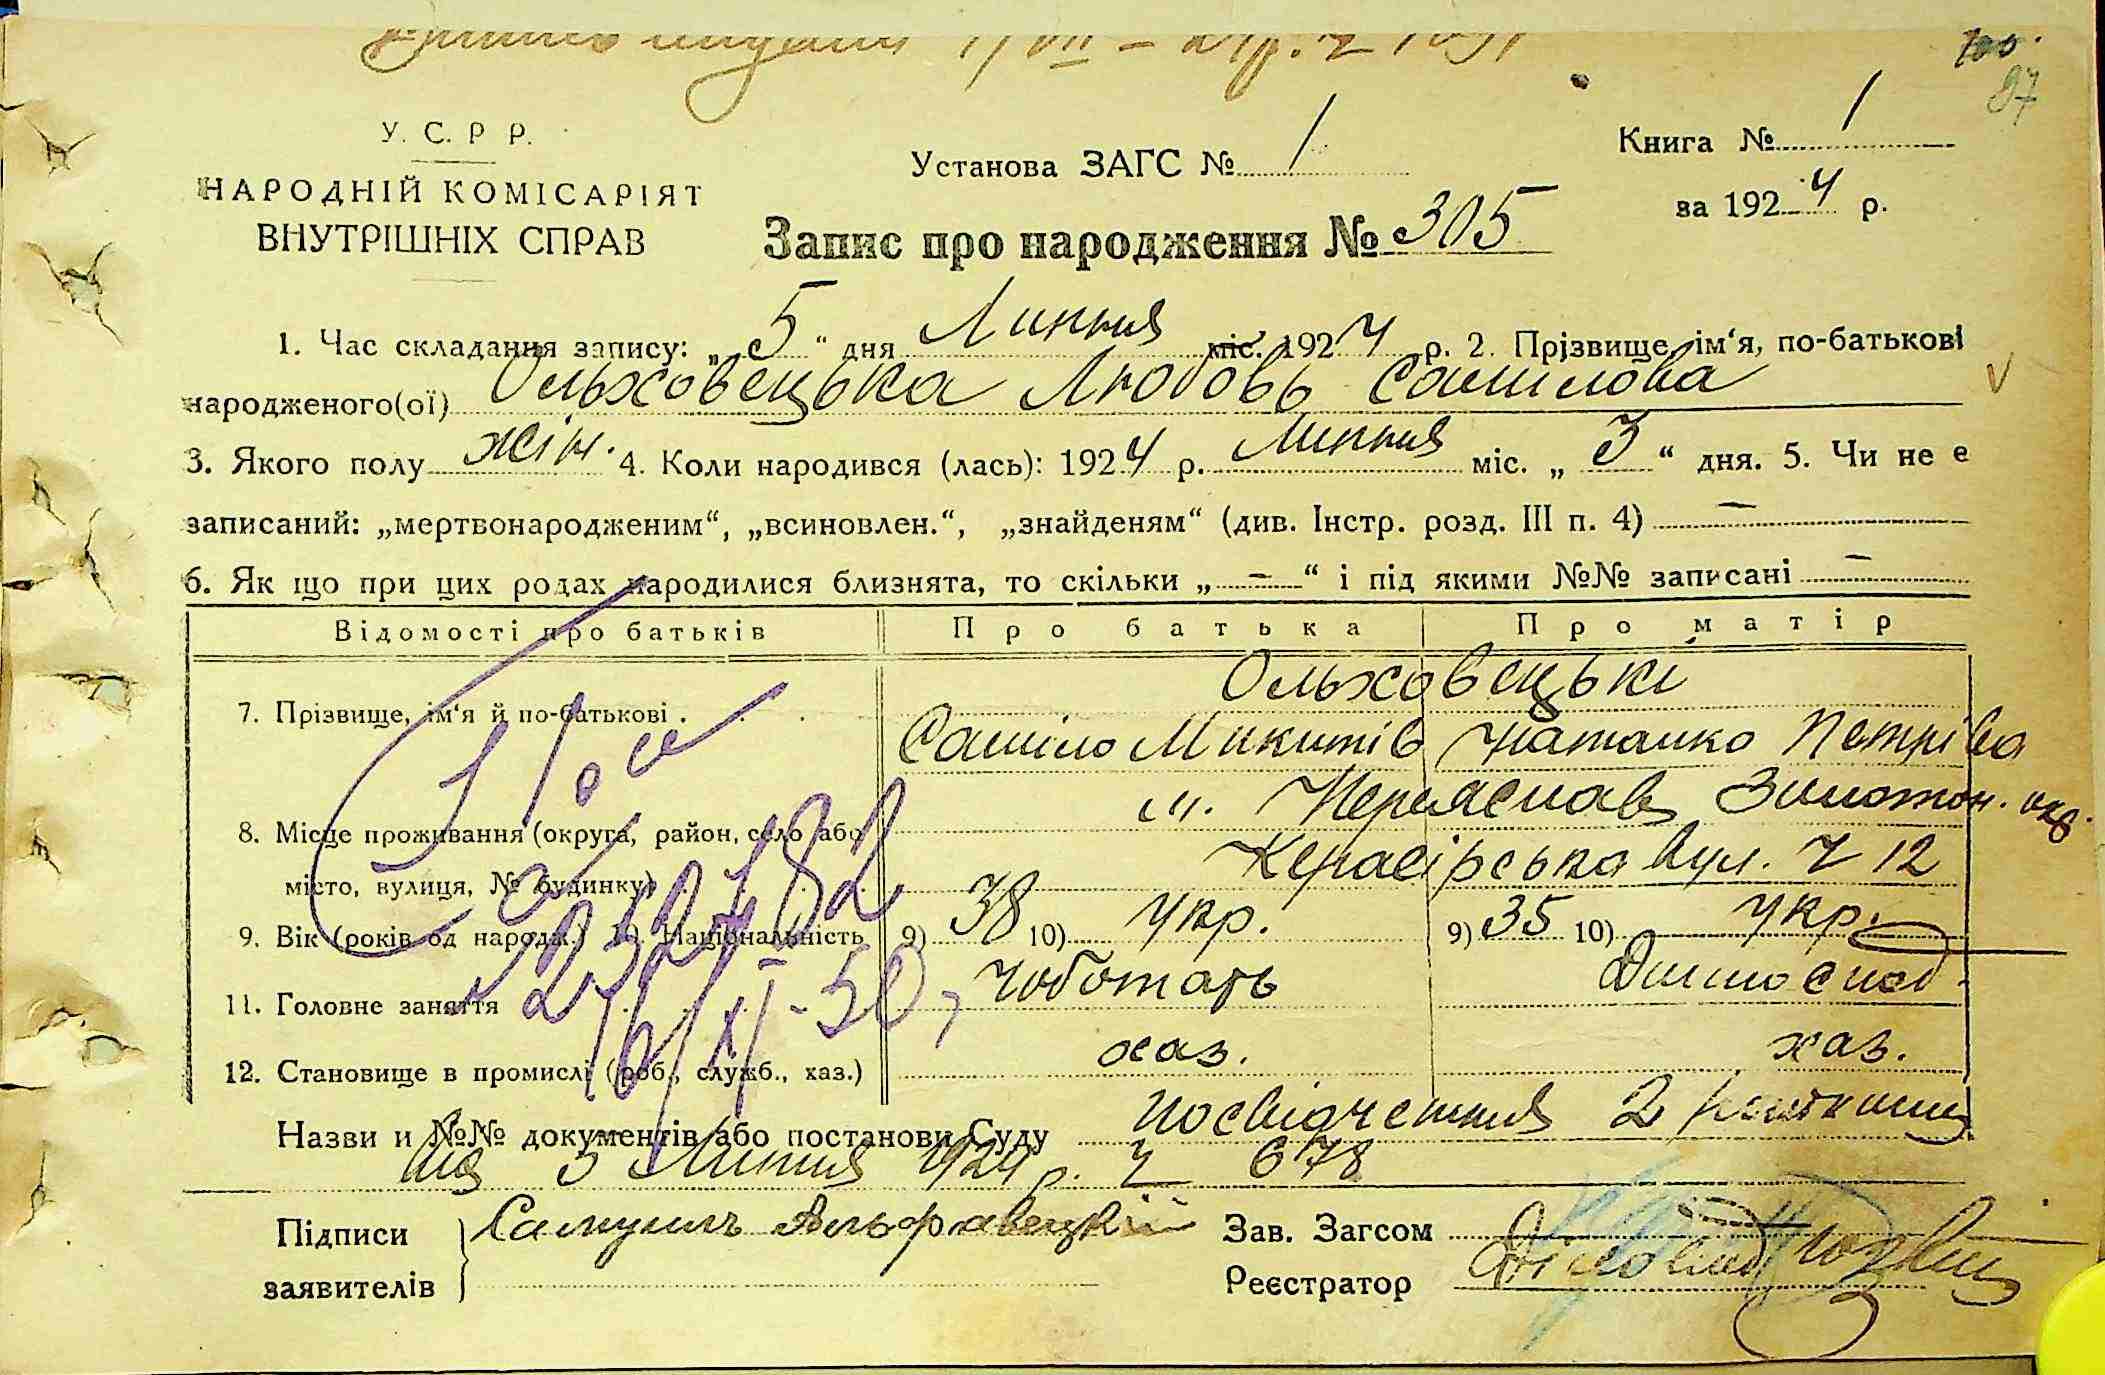 100.
97
У. С. Р Р.
НАРОДНІЙ КОМІСАРІЯТ
ВНУТРІШНІХ СПРАВ
Установа ЗАГС № 1
Книга № 1
за 1924 р.
Запис про народження № 305
1. Час складання запису: „5“ дня Липня міс. 1924 р. 2. Прізвище, ім‘я, по-батькові
народженого(ої) Ольховецька Любовь Самілова
V
3. Якого полу жін. 4. Коли народився (лась): 1924 р. Липня міс. „3“ дня. 5. Чи не е
записаний: „мертвонародженим“, „всиновлен.“, „знайденям“ (див. Інстр. розд. III п. 4) —
6. Як що при цих родах народилися близнята, то скільки „ — “ і під якими №№ записані —
Відомості про батьків Про батька Про матір
Ольховецькі
7. Прізвище, ім‘я й по-батькові . . . . Саміло Микитів Наталко Петрівна
8. Місце проживання (округа, район, село або м. Переяслав Золотон. окр.
місто, вулиця, № будинку) вул. Ч 12
9. Вік (років од народж.) 10. Національність 9) 38 10) Укр. 9) 35 10) Укр.
11. Головне заняття Чоботарь
12. Становище в промислі (роб., служб., хаз.) хаз. хаз.
232482
16/XI-50
Назви и №№ документів або постанови Суду посвідчення 2
від 3 Липня 1924 р. Ч 678
Підписи
заявителів
Зав. Загсом
Реєстратор